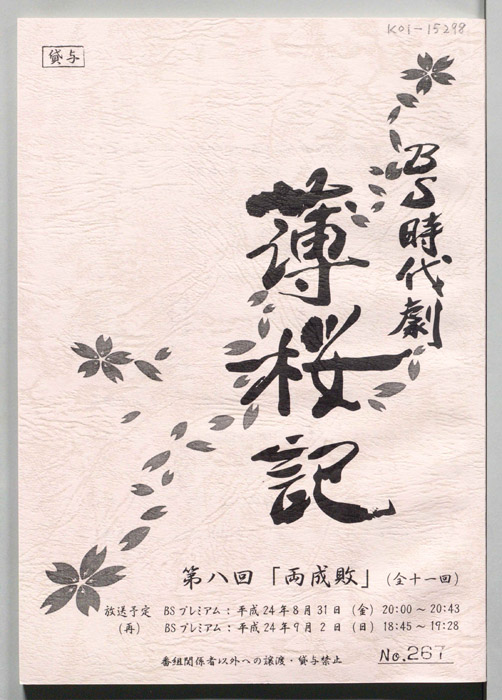 K01-15298
貸与
BS時代劇
薄桜記
第八回「両成敗」(全十一回)
放送予定 BSプレミアム:平成24年8月31日(金)20:00～20:43
(再) BSプレミアム:平成24年9月2日(日)18:45～19:28
番組関係者以外への譲渡・貸与禁止
No.267